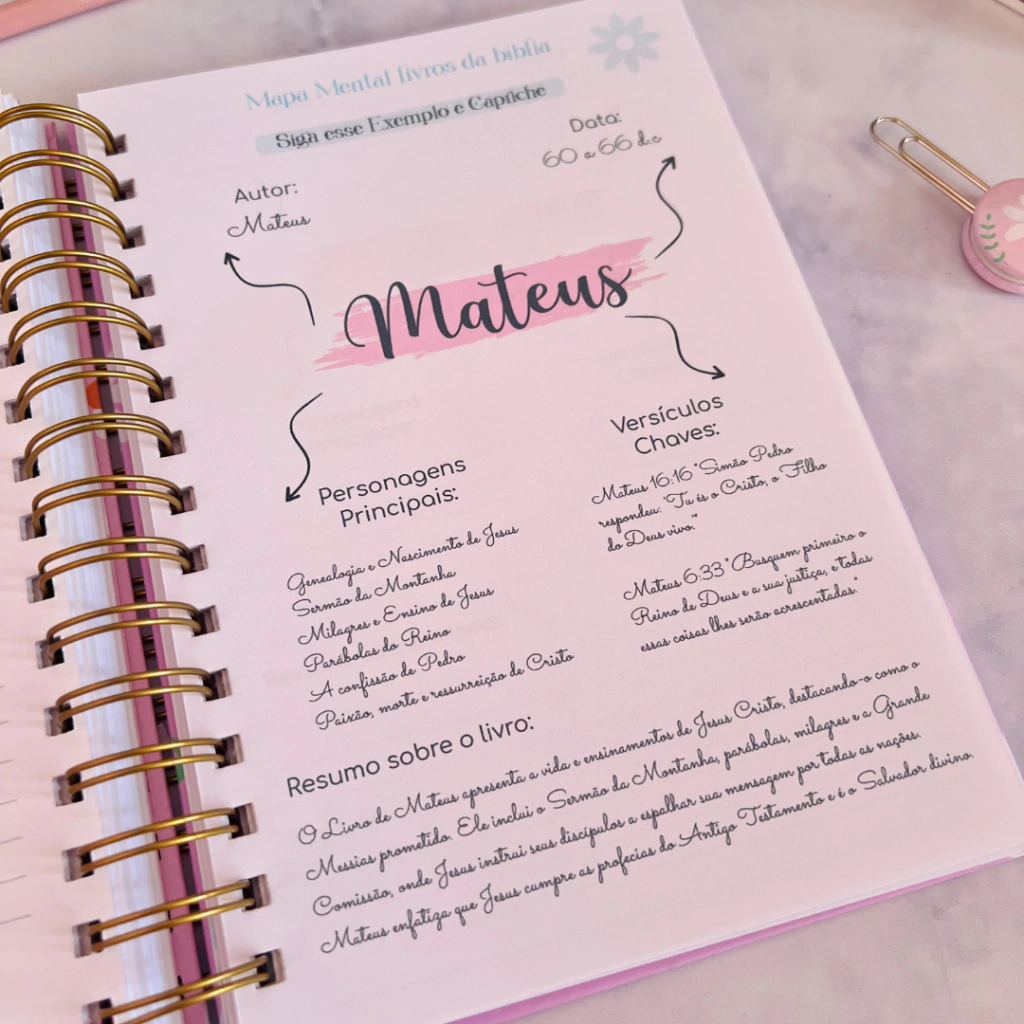 Mapa Mental livros da bíblia
Siga esse Exemplo e Capriche
Autor:
Mateus
Data:
60 a 66 d.c
Mateus
Personagens
Principais:
Genealogia e Nascimento de Jesus
Sermão da Montanha
Milagres e Ensino de Jesus
Parábolas do Reino
A confissão de Pedro
Paixão, morte e ressurreição de Cristo
Versículos
Chaves:
Mateus 16:16 "Simão Pedro
respondeu: "Tu és o Cristo, o Filho
do Deus vivo."
Mateus 6:33 "Busquem primeiro o
Reino de Deus e a sua justiça, e todas
essas coisas lhes serão acrescentadas."
Resumo sobre o livro:
O Livro de Mateus apresenta a vida e ensinamentos de Jesus Cristo, destacando-o como o
Messias prometido. Ele inclui o Sermão da Montanha, parábolas, milagres e a Grande
Comissão, onde Jesus instrui seus discípulos a espalhar sua mensagem por todas as nações.
Mateus enfatiza que Jesus cumpre as profecias do Antigo Testamento e é o Salvador divino.